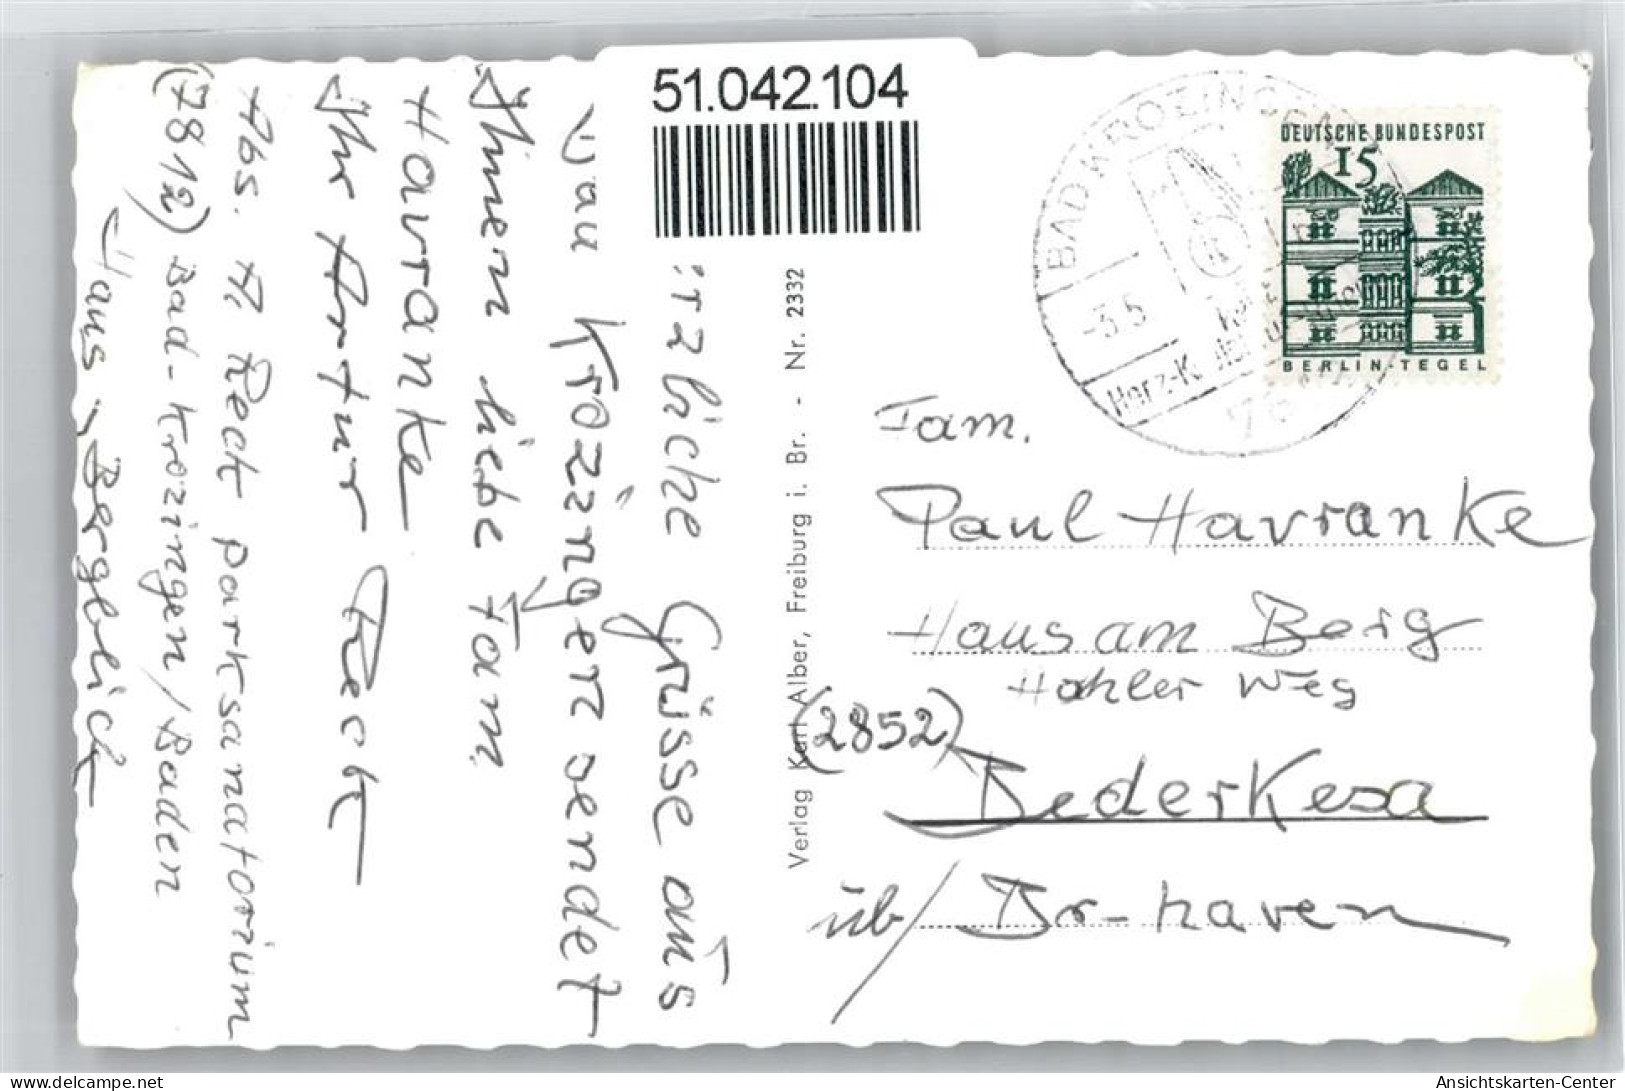 51.042.104
:rzliche Grüsse aus
Krozingen sendet
Ihnen liebe Fam.
Havranke
Ihr Artur Reck
Abs. A. Reck Parksanatorium
(7812) Bad-Krozingen/Baden
Haus "Bergblick
Verlag Karl Alber, Freiburg i. Br. - Nr. 2332
BAD KROZINGEN
-3.5
DEUTSCHE BUNDESPOST
15
BERLIN-TEGEL
Fam.
Paul Havranke
Haus am Berg
Hohler Weg
(2852)
Bederkesa
üb/ Br-haven
Ansichtskarten-Center
the-collector.com-DE